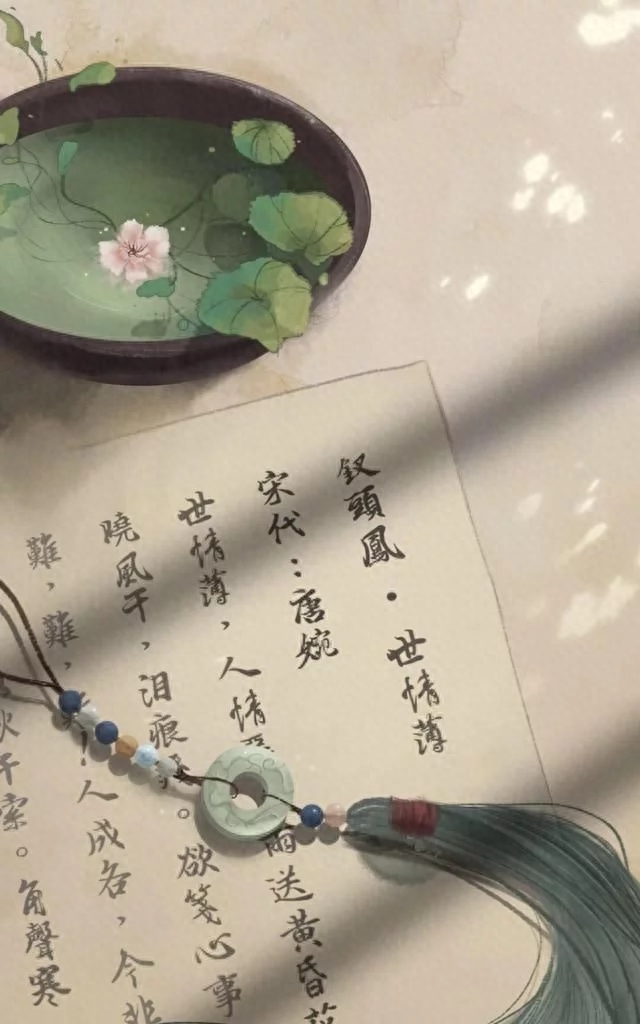 釵頭鳳·世情薄
宋代：唐婉
世情薄，人情雨送黃昏花
曉風干，泪痕。欲箋心事
難，難，！人成各，今非
秋千索。角聲寒